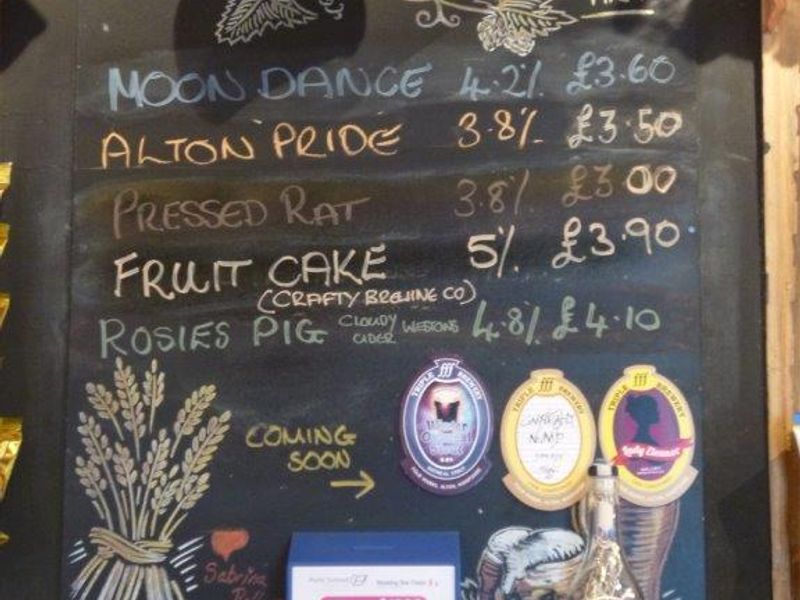 MOON DANCE 4.2% £3.60
ALTON PRIDE 3.8% £3.50
PRESSED RAT 3.8% £3.00
FRUIT CAKE 5% £3.90
(CRAFTY BREWING CO)
ROSIES PIG CLOUDY CIDER WESTONS 4.8% £4.10
COMING SOON
TRIPLE fff BREWERY
TRIPLE fff BREWERY
TRIPLE fff BREWERY
Lady Eleanor
Sabrina